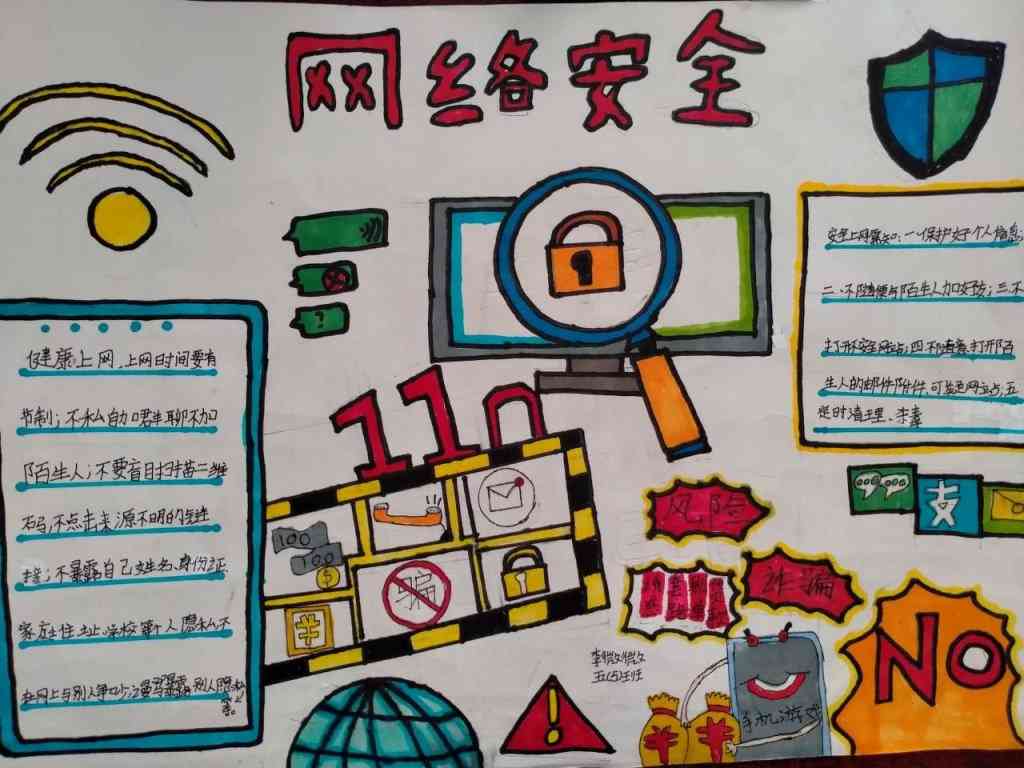 网络安全
健康上网，上网时间要有
节制；不私自加群聊不加
陌生人；不要盲目扫描二维
码，不点击来源不明的链
接；不暴露自己姓名、身份证
家庭住址、学校等个人隐私不
在网上与别人争吵；漫骂暴露别人隐私
安全上网需知：一、保护好个人信息；
二、不随便与陌生人加好友；三、不
打开不安全网站；四、不随意打开陌
生人的邮件附件，可疑网站，五
定时清理、杀毒
?
110
100
100
骗
风险
诈骗
支
NO
李微微
五(5)班
手机游戏